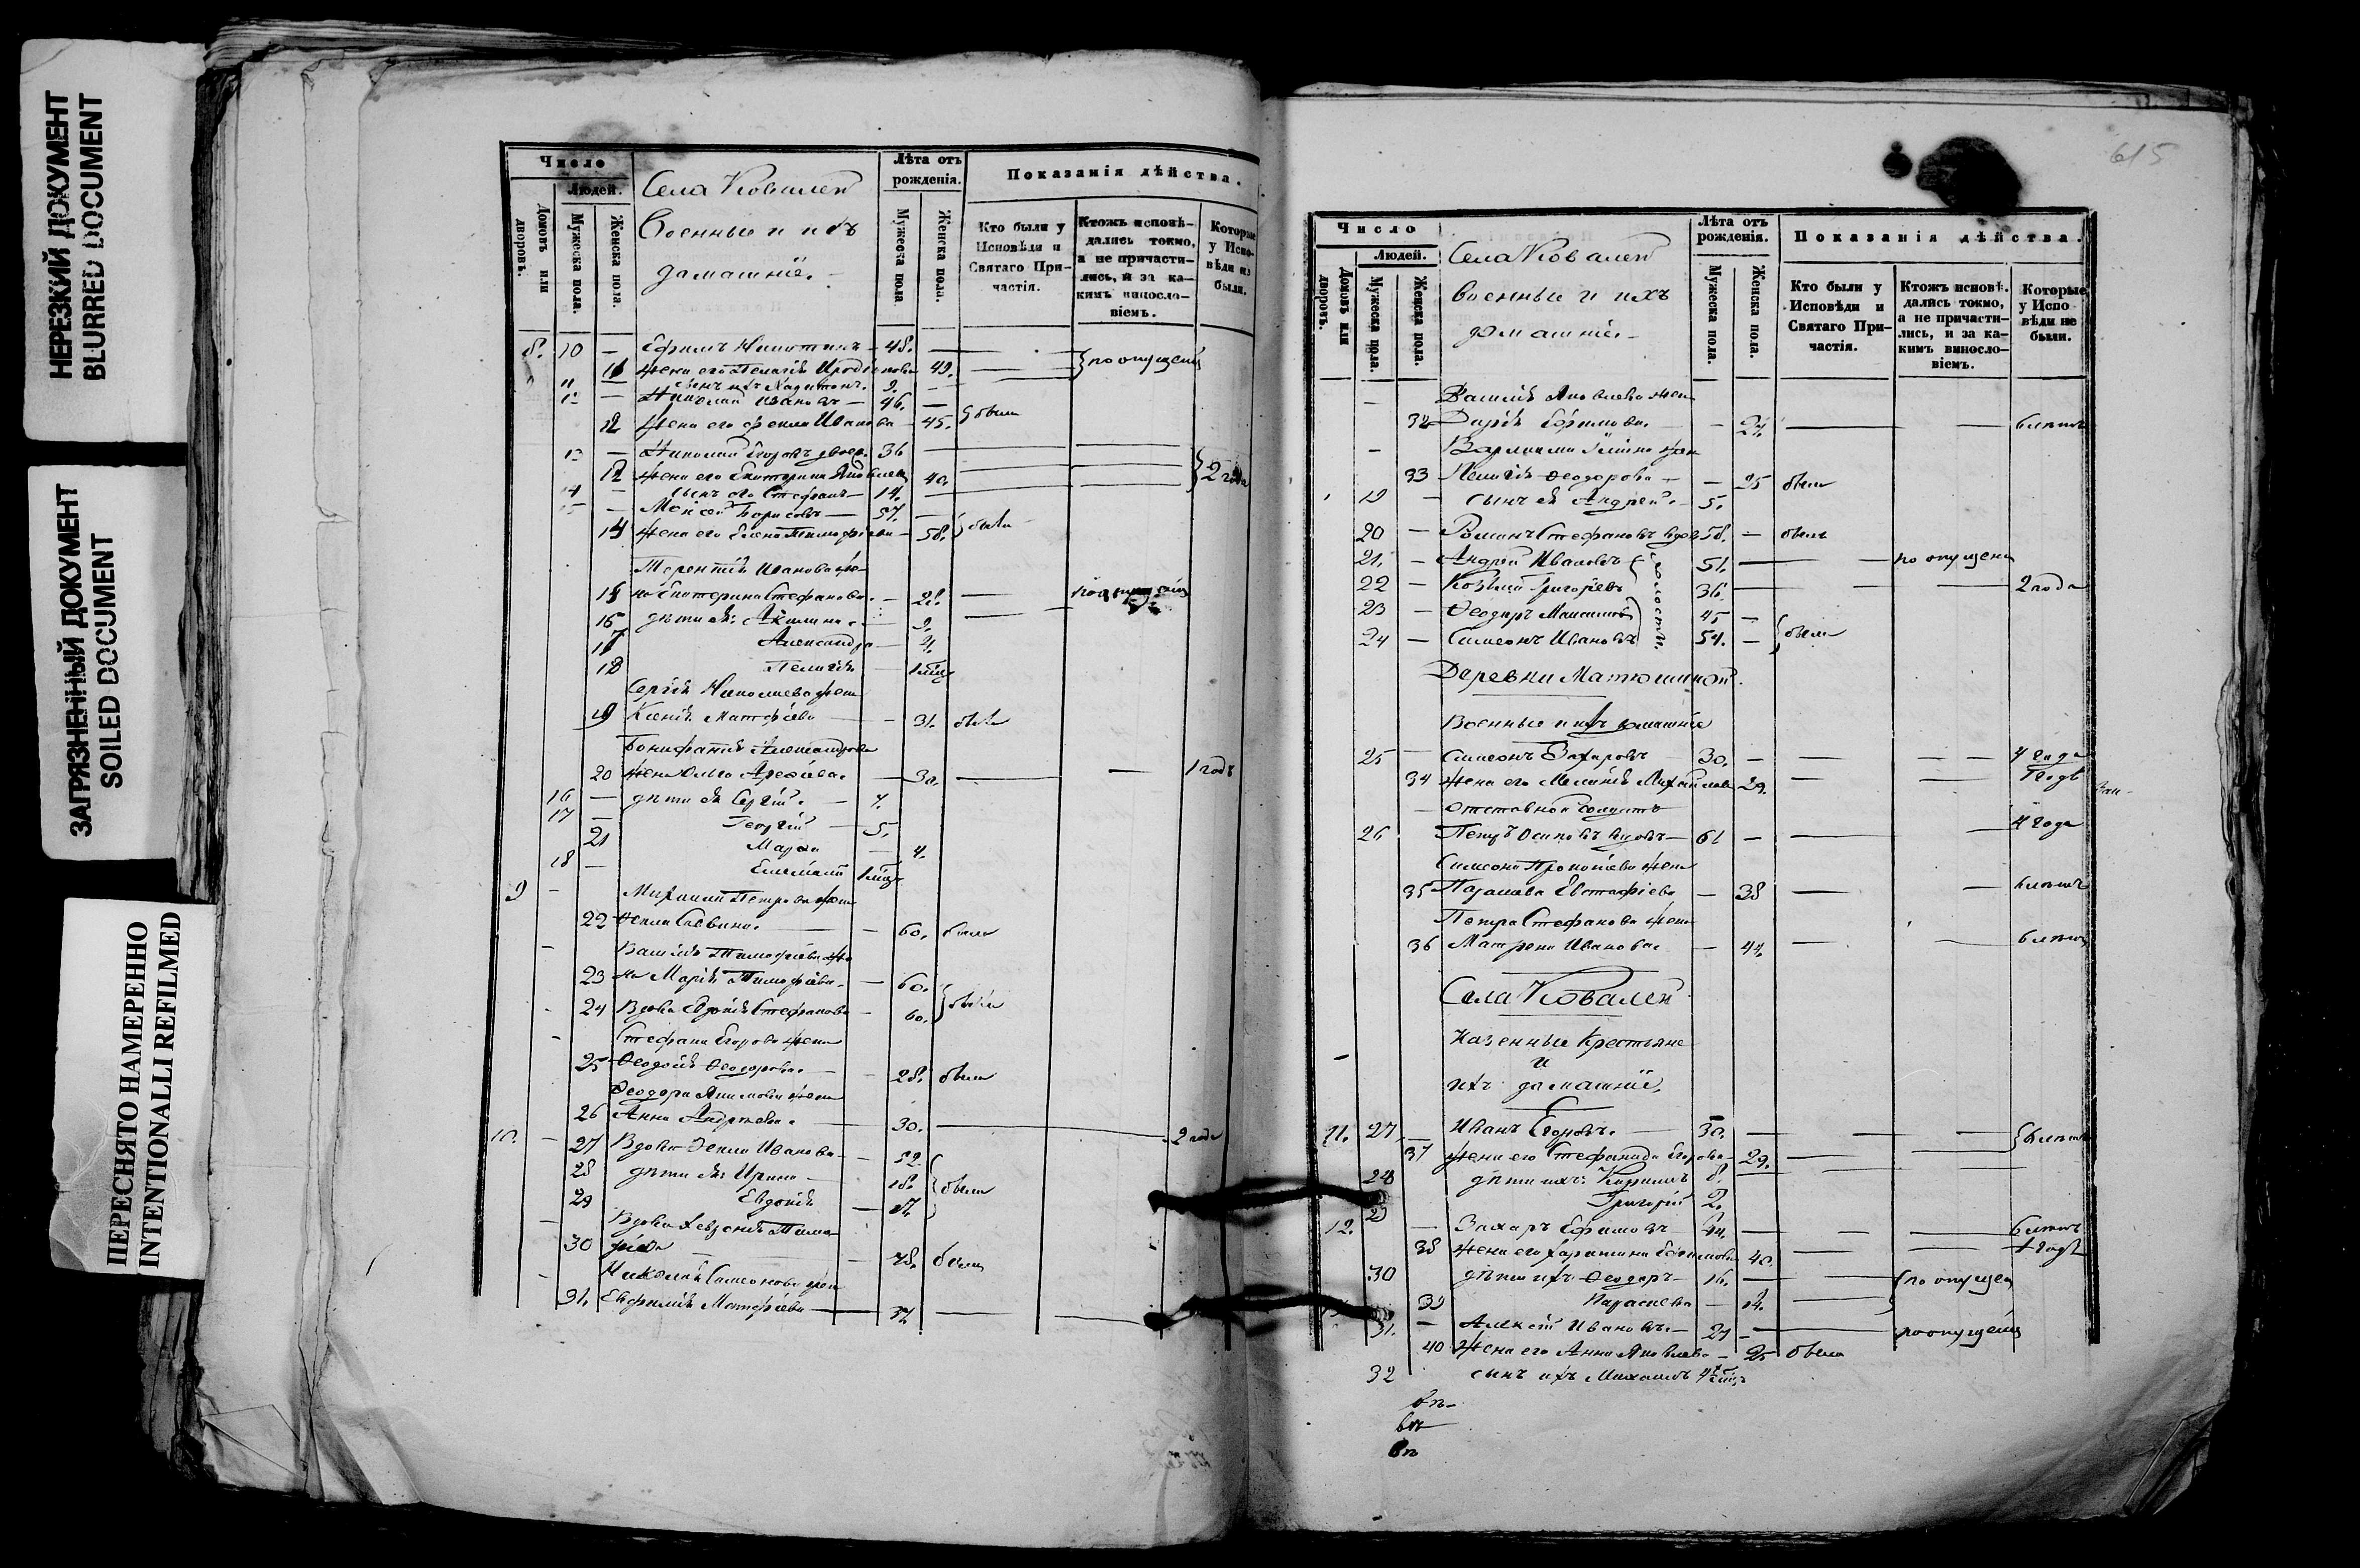 НЕРЕЗКИЙ ДОКУМЕНТ
BLURRED DOCUMENT
ЗАГРЯЗНЕННЫЙ ДОКУМЕНТ
SOILED DOCUMENT
ПЕРЕСНЯТО НАМЕРЕННО
INTENTIONALLI REFILMED
Число
Людей.
Домовъ или дворовъ.
Мужеска пола.
Женска пола.
Села Ковалей
Военные и ихъ
домашніе.
Лѣта отъ рожденія.
Мужеска пола
Женска пола.
Показанія дѣйства.
Кто были у Исповѣди и Святаго Причастія.
Ктожъ исповѣдались токмо, а не причастились, и за какимъ винословіемъ.
Которые у Исповѣди не были.
8. 10 — Ефимъ Никитинъ — 48. —
11 жена его Пелагія 49. — по опущенію
11 — сынъ ихъ 9. —
12 — Николай Ивановъ — 46. —
12 жена его Фекла Иванова 45. были
13 — Николай Егоровъ 36 —
жена его Екатерина Яковлева 40. 2 года
14 — сынъ его Стефанъ — 14. —
15 — Моисей Борисовъ — 57. —
14 жена его Елена Тимофіева — 58. были
Терентія Иванова же-
15 на Екатерина Стефанова. — 28. — по опущенію
16 дѣти ея: Акилина — 9.
17 Александра — 4.
18 Пелагія — 1 мѣц
Сергія Николаева жена
19 Ксенія Матфіева — 31. была
Вонифатія Александрова
20 жена Ольга — 30. — 1 годъ
16 — дѣти ея Сергій — 7.
17 — Георгій — 5.
21 Марѳа — 4.
18 — Емеліанъ 1 мѣц
9 — Михаила Петрова жена
22 Ѳекла Саввина. — 60. была
Василія Тимофіева же-
23 на Марія Тимофіева. — 60.
24 Вдова Евдокія Стефанова — 60. были
Стефана Егорова жена
25 Ѳеодосія Ѳеодорова. — 28. была
Ѳеодора Якимова жена
26 Анна Андреева. — 30. — 2 года
10. — 27 Вдова Ѳекла Иванова — 52.
28 дѣти ея Ирина — 18. были
29 Евдокія — 17.
Вдова Хевронія Тимо-
30 фіева — 48. была
Николая Самсонова жена
31. Евфимія Матфіева — 37 —
615
Число
Людей.
Домовъ или дворовъ.
Мужеска пола.
Женска пола.
Села Ковалей
Военные и ихъ
домашніе.
Лѣта отъ рожденія.
Мужеска пола.
Женска пола.
Показанія дѣйства.
Кто были у Исповѣди и Святаго Причастія.
Ктожъ исповѣдались токмо, а не причастились, и за какимъ винословіемъ.
Которые у Исповѣди не были.
— Василія Яковлева жена
32 Дарія Ефимова. — 24. — 6 лѣтъ
33 Пелагія Ѳеодорова — 25 была
19 — сынъ ея Андрей. — 5.
20 — Романъ Стефановъ вдов 58. — былъ
21. — Андрей Ивановъ 51. — по опущенію
22 — Козьма Григорьевъ 36. — 2 года
23 — Ѳеодоръ Максимовъ 45 —
24 — Самсонъ Ивановъ 54. — были
холосты.
Деревни Матюшиной.
Военные и ихъ домашніе
25 — Самсонъ Захаровъ 30. — 4 года
34 жена его Меланія Михайлова 29. — 1 годъ
— Отставной солдатъ
26 Петръ Осиповъ вдовъ — 61 — 4 года
Самсона Прокопіева жена
35 Параскева Евстафіева — 38 — 6 лѣтъ
Петра Стефанова жена
36 Матрена Иванова. — 44. — 6 лѣтъ
Села Ковалей
Казенные Крестьяне
и
ихъ домашніе.
11. 27 — Иванъ Егоровъ. — 30. — 6 лѣтъ
37 жена его Стефанида Егорова — 29. —
28 дѣти ихъ: Кириллъ 8.
29 Григорій 2.
12. — Захаръ Ефимовъ 44. — 6 лѣтъ
38 жена его Харитина Ефимова 40. — 1 годъ
30 дѣти ихъ Ѳеодоръ — 16. — по опущен
39 Параскева — 14. —
31. — Алексѣй Ивановъ — 21 — по опущенію
40 жена его Анна Яковлева — 25 была
32 сынъ ихъ Михаилъ